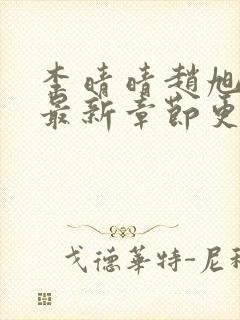 李晴晴趙旭
最新章節更
戈德華特-尼科